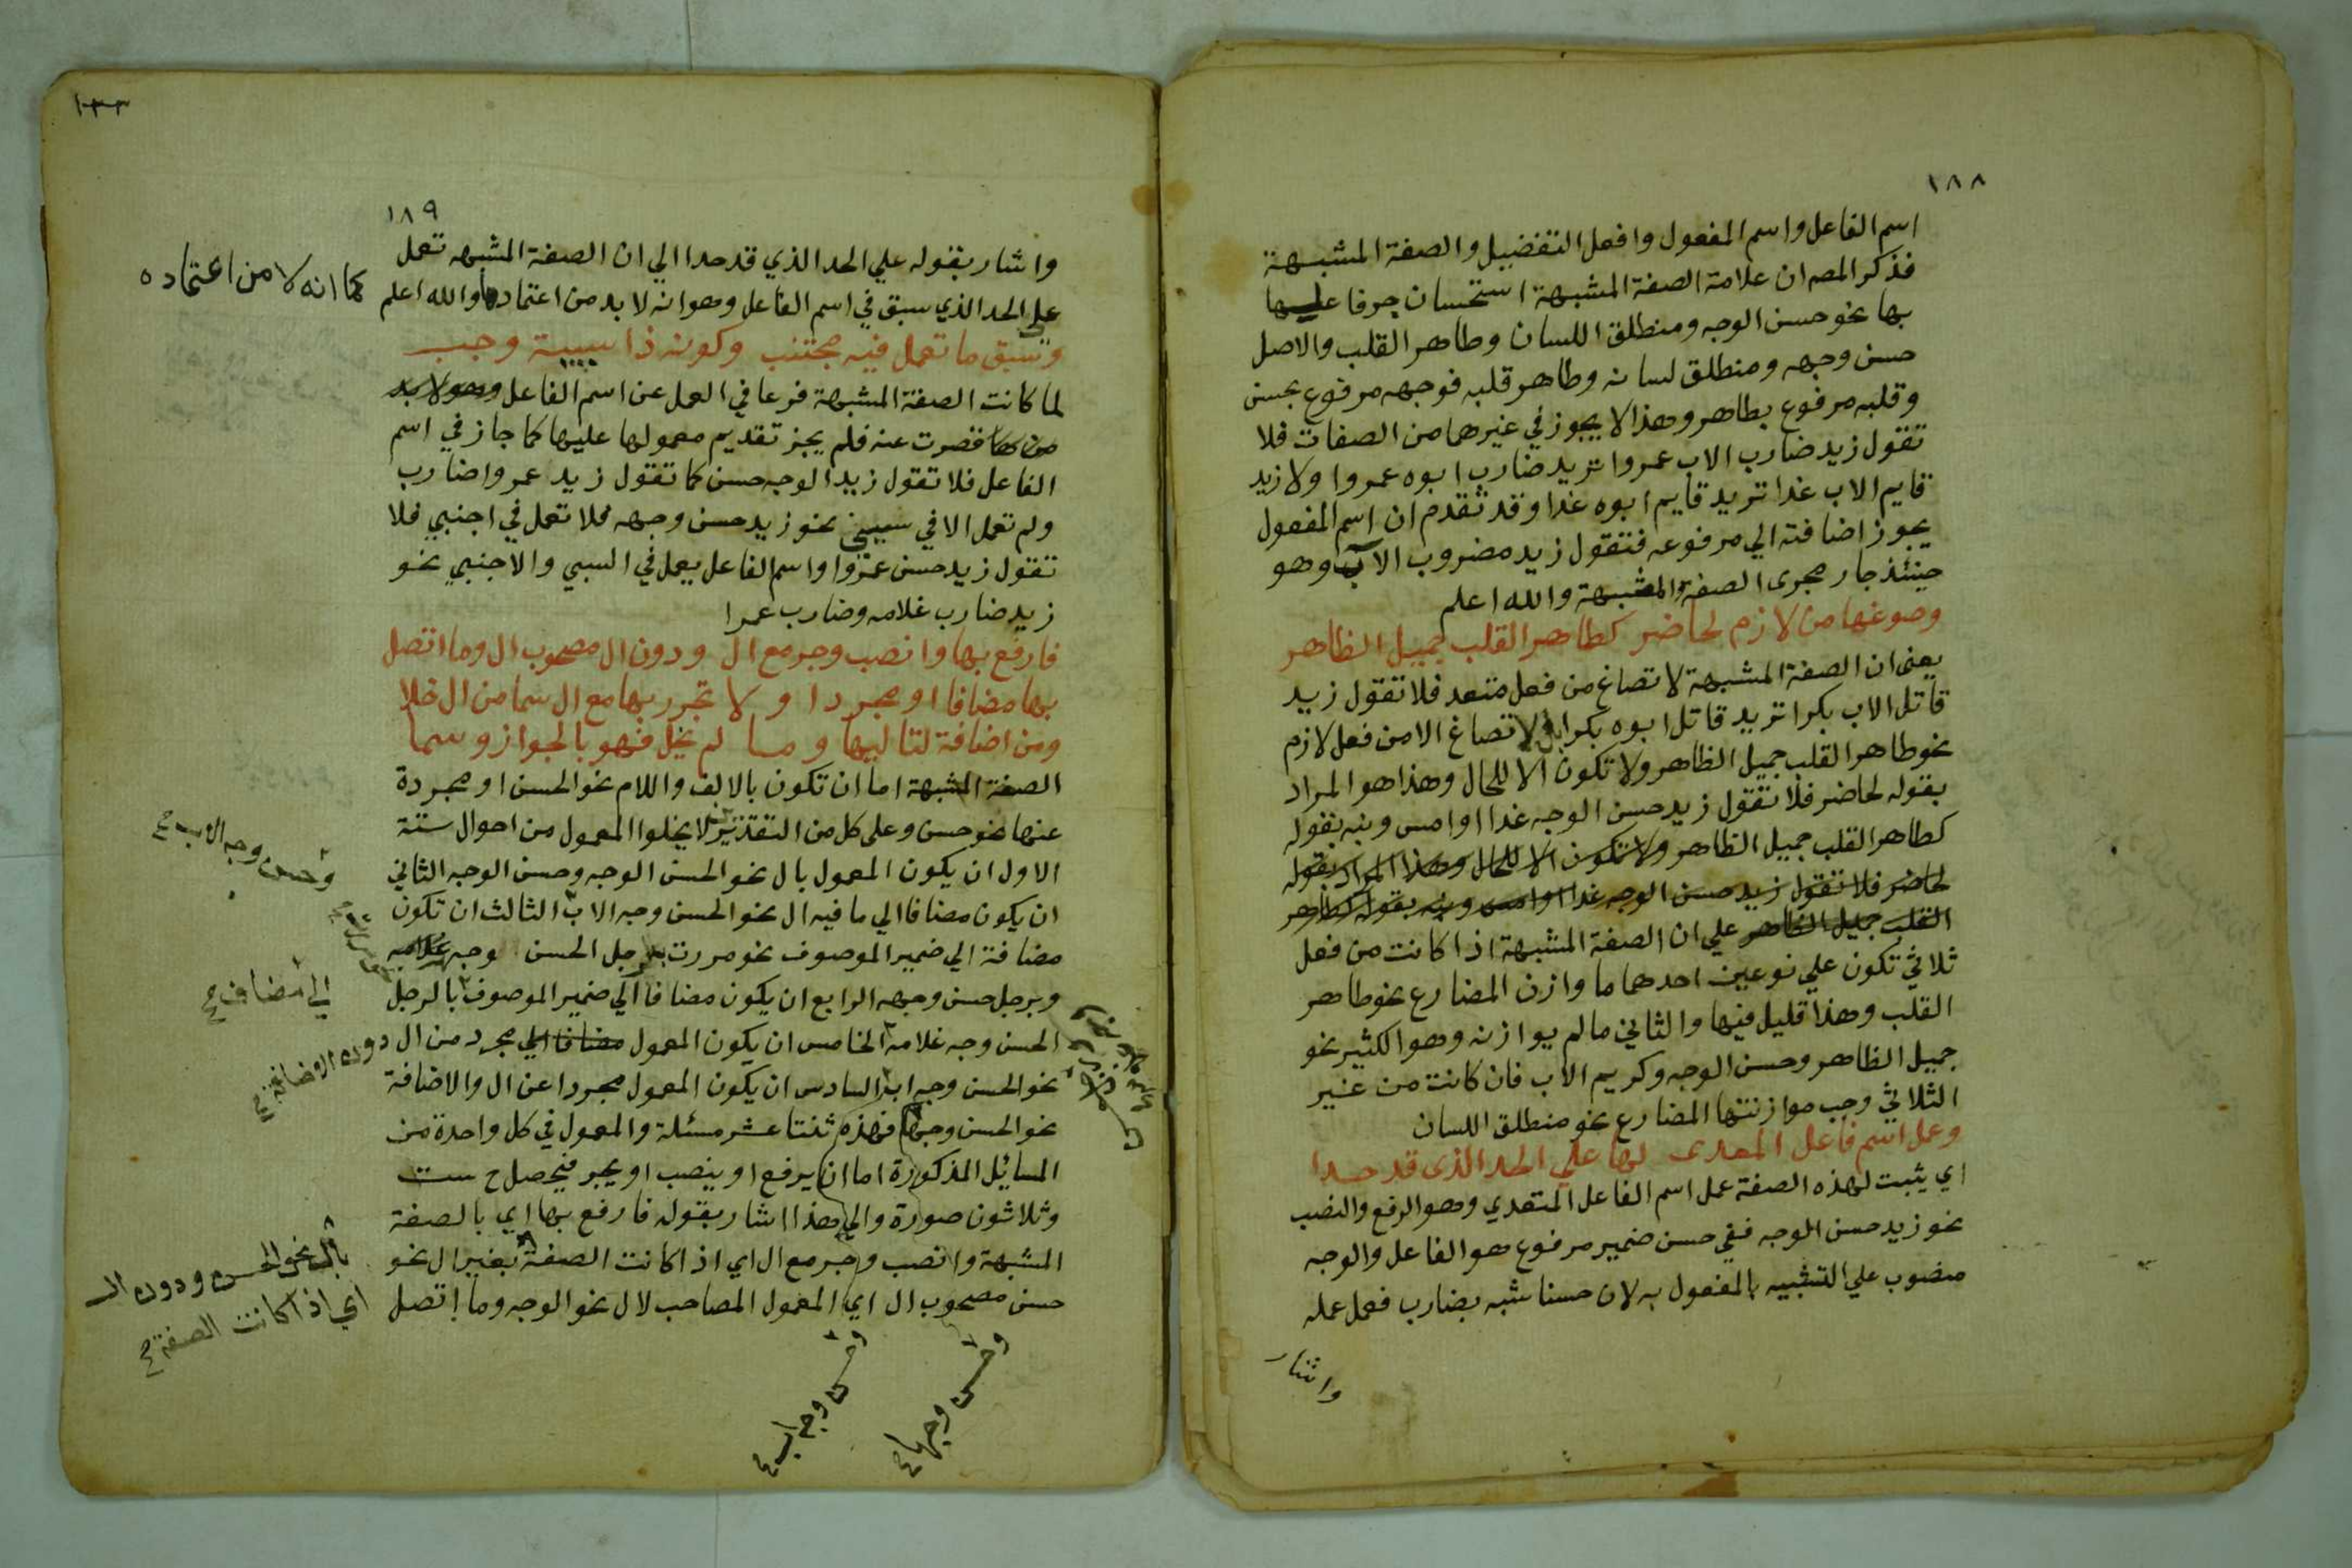 ١٨٨
اسم الفاعل واسم المفعول وافعل التفضيل والصفة المشبهة
فذكر المصـ ان علامة الصفة المشبهة استحسان جر فاعليها
بها نحو حسن الوجه ومنطلق اللسان وطاهر القلب والاصل
حسن وجهه ومنطلق لسانه وطاهر قلبه فوجهه مرفوع بحسن
وقلبه مرفوع بطاهر وهذا لا يجوز في غيرها من الصفات فلا
تقول زيد ضارب الاب عمروا تريد ضارب ابوه عمروا ولا زيد
قايم الاب غدا تريد قايم ابوه غدا وقد تقدم ان اسم المفعول
يجوز اضافته الي مرفوعه فتقول زيد مضروب الاب وهو
حينئذ جار مجرى الصفة المشبهة والله اعلم
وصوغها من لازم لحاضر كطاهر القلب جميل الظاهر
يعنى ان الصفة المشبهة لا تصاغ من فعل متعد فلا تقول زيد
قاتل الاب بكرا تريد قاتل ابوه بكرا بل لا تصاغ الا من فعل لازم
نحو طاهر القلب جميل الظاهر ولا تكون الا للحال وهذا هو المراد
بقوله لحاضر فلا تقول زيد حسن الوجه غدا او امس ونبه بقوله
كطاهر القلب جميل الظاهر ولا تكون الا للحال وهذا المراد بقوله
لحاضر فلا تقول زيد حسن الوجه غدا او امس ونبه بقوله كطاهر
القلب جميل الظاهر علي ان الصفة المشبهة اذا كانت من فعل
ثلاثي تكون علي نوعين احدهما ما وازن المضارع نحو طاهر
القلب وهذا قليل فيها والثاني ما لم يوازنه وهو الكثير نحو
جميل الظاهر وحسن الوجه وكريم الاب فان كانت من غير
الثلاثي وجب موازنتها المضارع نحو منطلق اللسان
وعمل اسم فاعل المعدى لها علي الحد الذى قد حدا
اي يثبت لهذه الصفة عمل اسم الفاعل المتعدي وهو الرفع والنصب
نحو زيد حسن الوجه ففي حسن ضمير مرفوع هو الفاعل والوجه
منصوب علي التشبيه بالمفعول به لان حسنا شبه بضارب فعمل عمله
واشار
١٨٩
واشار بقوله علي الحد الذي قد حدا الي ان الصفة المشبهه تعمل
علي الحد الذي سبق في اسم الفاعل وهو انه لا بد من اعتمادها والله اعلم
كما انه لا من اعتماده
وسبق ما تعمل فيه مجتنب وكونه ذا سببية وجب
لما كانت الصفة المشبهة فرعا في العمل عن اسم الفاعل وهو لا بد
من ها قصرت عنه فلم يجز تقديم معمولها عليها كما جاز في اسم
الفاعل فلا تقول زيد الوجه حسن كما تقول زيد عمروا ضارب
ولم تعمل الا في سببي نحو زيد حسن وجهه فلا تعمل في اجنبي فلا
تقول زيد حسن عمروا واسم الفاعل يعمل في السببي والاجنبي نحو
زيد ضارب غلامه وضارب عمرا
فارفع بها وانصب وجر مع ال ودون ال مصحوب ال وما اتصل
بها مضافا او مجردا ولا تجرر بها مع ال سما من ال خلا
ومن اضافة لتاليها وما لم يخل فهو بالجواز وسما
الصفة المشبهة اما ان تكون بالالف واللام نحو الحسن او مجردة
عنها نحو حسن وعلى كل من التقديرين لا يخلوا المعمول من احوال ستة
الاول ان يكون المعمول بال نحو الحسن الوجه وحسن الوجه الثاني
ان يكون مضافا الي ما فيه ال نحو الحسن وجه الاب الثالث ان تكون
وحسن وجه الاب
مضافة الي ضمير الموصوف نحو مررت بالرجل الحسن وجهه غلامه
وبرجل حسن وجهه الرابع ان يكون مضافا الي ضمير الموصوف بالرجل
الي مضاف
الحسن وجه غلامه الخامس ان يكون المعمول مضافا الي مجرد من ال
دون الاضافة
نحو الحسن وجه اب السادس ان يكون المعمول مجردا عن ال والاضافة
نحو الحسن وجها فهذه ثنتا عشر مسئلة والمعمول في كل واحدة من
المسائل المذكورة اما ان يرفع او ينصب او يجر فيحصل ح ست
وثلاثون صورة والي هذا اشار بقوله فارفع بها اي بالصفة
المشبهة وانصب وجر مع ال اي اذا كانت الصفة بغير ال نحو
بال نحو الحسن ودون ال
اي اذا كانت الصفة
حسن مصحوب ال اي المعمول المصاحب لال نحو الوجه وما اتصل
وحسن وجه اب
وحسن وجها